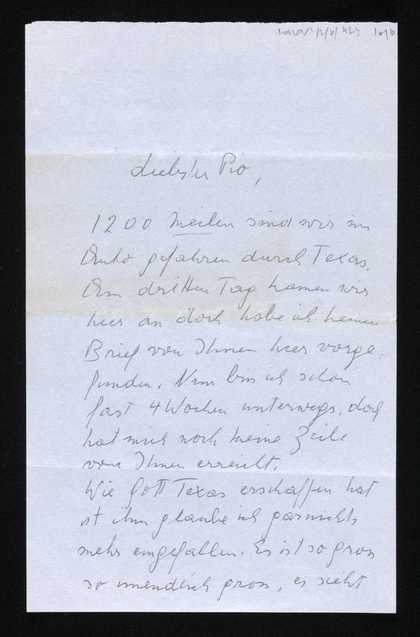 Liebster Pio,
1200 Meilen sind wir im
Auto gefahren durch Texas.
Am dritten Tag kamen wir
hier an doch habe ich keinen
Brief von Ihnen hier vorge-
funden. Nun bin ich schon
fast 4 Wochen unterwegs, doch
hat mich noch keine Zeile
von Ihnen erreicht.
Wie Gott Texas erschaffen hat
ist ihm glaube ich garnichts
mehr eingefallen. Es ist so gross
so unendlich gross, es sieht